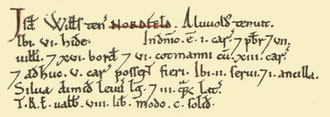 Isd Willſ ten NORDFELD. Aluuold tenuit.
Ibi. VI. hidę. In dn̄io. ē. I. car. 7 pb̄r 7 un
uilłi 7 XVI. bord 7 VI. cotmanni cū. XIII. car
7 adhuc. V. car poſſent fieri. Ibi. II. ſerui. 7 I. ancilla.
Silua dimid leuu lg̃. 7 III. q̃ꝝ lat̃.
T.R.E. ualb̄. VIII. lib. modo. C. ſolid.